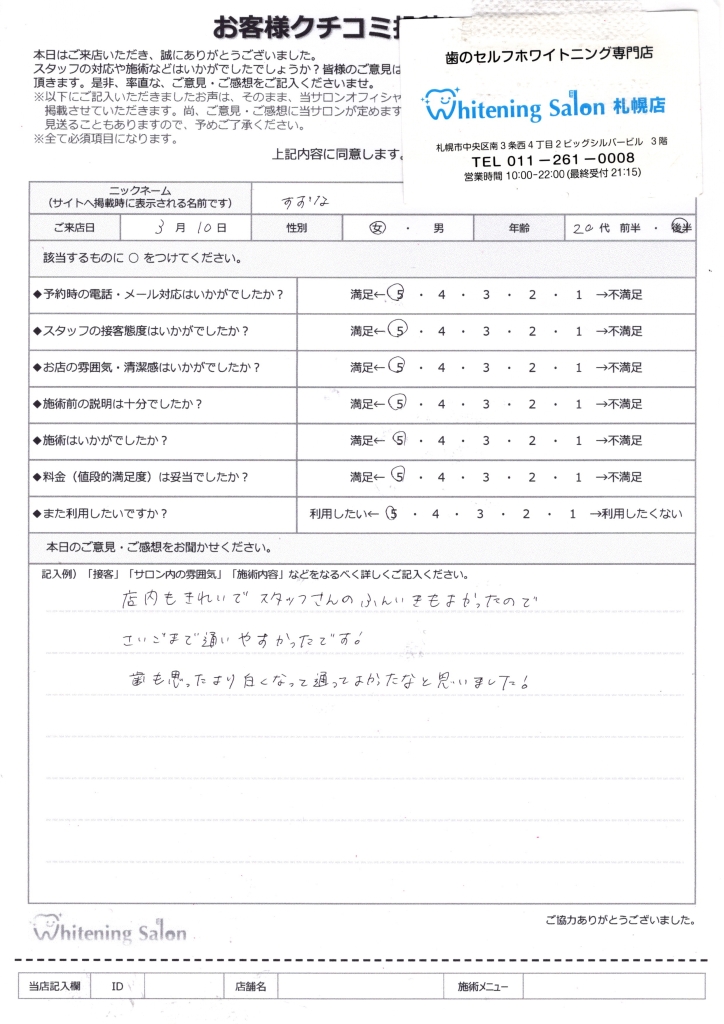 お客様クチコミ
本日はご来店いただき、誠にありがとうございました。
スタッフの対応や施術などはいかがでしたでしょうか？皆様のご意見は
頂きます。是非、率直な、ご意見・ご感想をご記入くださいませ。
※以下にご記入いただきましたお声は、そのまま、当サロンオフィシャ
掲載させていただきます。尚、ご意見・ご感想に当サロンが定めます
見送ることもありますので、予めご了承ください。
※全て必須項目になります。
上記内容に同意します。
歯のセルフホワイトニング専門店
Whitening Salon 札幌店
札幌市中央区南3条西4丁目2ビッグシルバービル 3階
TEL 011-261-0008
営業時間 10:00~22:00 (最終受付 21:15)
ニックネーム
（サイトへ掲載時に表示される名前です）
ご来店日 3 月 10 日 性別 女 ・ 男 年齢 20 代 前半 ・ 後半
該当するものに ○ をつけてください。
◆予約時の電話・メール対応はいかがでしたか？ 満足← 5 ・ 4 ・ 3 ・ 2 ・ 1 →不満足
◆スタッフの接客態度はいかがでしたか？ 満足← 5 ・ 4 ・ 3 ・ 2 ・ 1 →不満足
◆お店の雰囲気・清潔感はいかがでしたか？ 満足← 5 ・ 4 ・ 3 ・ 2 ・ 1 →不満足
◆施術前の説明は十分でしたか？ 満足← 5 ・ 4 ・ 3 ・ 2 ・ 1 →不満足
◆施術はいかがでしたか？ 満足← 5 ・ 4 ・ 3 ・ 2 ・ 1 →不満足
◆料金（値段的満足度）は妥当でしたか？ 満足← 5 ・ 4 ・ 3 ・ 2 ・ 1 →不満足
◆また利用したいですか？ 利用したい← 5 ・ 4 ・ 3 ・ 2 ・ 1 →利用したくない
本日のご意見・ご感想をお聞かせください。
記入例）「接客」「サロン内の雰囲気」「施術内容」などをなるべく詳しくご記入ください。
店内もきれいでスタッフさんのふんいきもよかったので
さいごまで通いやすかったです!
歯も思ったより白くなって通ってよかたなと思いました!
Whitening Salon
ご協力ありがとうございました。
当店記入欄 ID 店舗名 施術メニュー